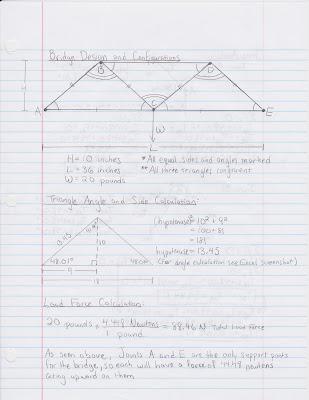 Bridge Design and Configurations
B
D
H
A
C
E
W
L
H = 10 inches
* All equal sides and angles marked
L = 36 inches
** All three triangles congruent
W = 20 pounds
Triangle Angle and Side Calculation:
13.45
10
48.01°
9
18
(hypotenuse)² = 10² + 9²
= 100 + 81
= 181
hypotenuse = 13.45
(For angle calculation see Excel Screenshot)
Load Force Calculation:
20 pounds × 4.448 Newtons / 1 pound = 88.96 N Total Load Force
As seen above, Joints A and E are the only support points
for the bridge, so each will have a force of 44.48 newtons
acting upward on them.